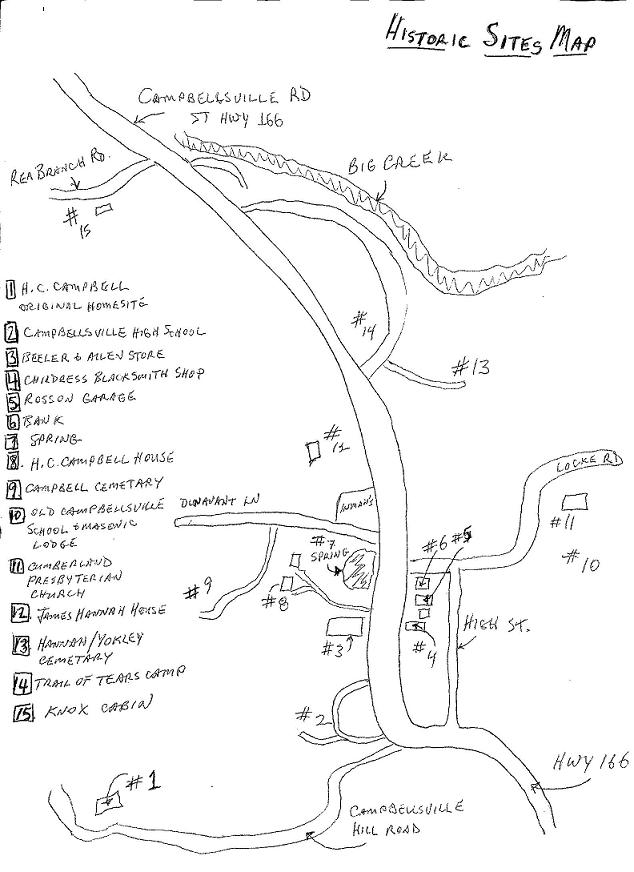 HISTORIC SITES MAP
CAMPBELLSVILLE RD
ST HWY 166
BIG CREEK
REA BRANCH RD.
#15
#14
#13
1 H.C. CAMPBELL
ORIGINAL HOMESITE
2 CAMPBELLSVILLE HIGH SCHOOL
3 BEELER & ALLEN STORE
4 CHILDRESS BLACKSMITH SHOP
5 ROSSON GARAGE
6 BANK
7 SPRING
8. H.C. CAMPBELL HOUSE
9 CAMPBELL CEMETARY
10 OLD CAMPBELLSVILLE
SCHOOL & MASONIC
LODGE
11 CUMBERLAND
PRESBYTERIAN
CHURCH
12. JAMES HANNAH HOUSE
13 HANNAH/YOKLEY
CEMETARY
14 TRAIL OF TEARS CAMP
15. KNOX CABIN
#12
LOCKE RD
DUNAVANT LN
INMAN'S
#11
#10
#7
SPRING
#6
#5
#9
#8
#3
#4
HIGH ST.
#2
#1
HWY 166
CAMPBELLSVILLE
HILL ROAD